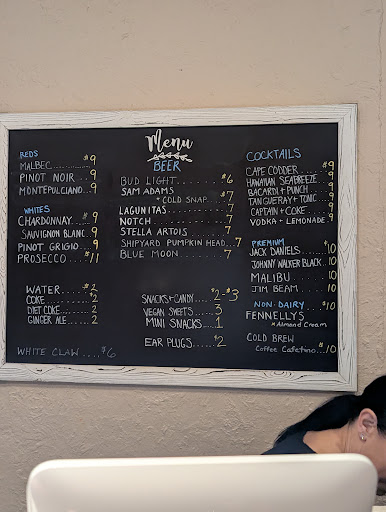 Menu
REDS
MALBEC.............$9
PINOT NOIR....9
MONTEPULCIANO..9
WHITES
CHARDONNAY...$9
SAUVIGNON BLANC.9
PINOT GRIGIO...9
PROSECCO.....$11
WATER.......$2
COKE..........$2
DIET COKE.....2
GINGER ALE.....2
WHITE CLAW....$6
BEER
BUD LIGHT.........$6
SAM ADAMS
+ COLD SNAP....$7
LAGUNITAS.........7
NOTCH............7
STELLA ARTOIS....7
SHIPYARD PUMPKIN HEAD..7
BLUE MOON.......7
SNACKS+CANDY....$2-$3
VEGAN SWEETS.....3
MINI SNACKS....1
EAR PLUGS.....$2
COCKTAILS
CAPE CODDER....$9
HAWAIIAN SEABREEZE.9
BACARDI + PUNCH...9
TANGUERAY + TONIC.9
CAPTAIN + COKE....9
VODKA + LEMONADE.9
PREMIUM
JACK DANIELS.....$10
JOHNNY WALKER BLACK.10
MALIBU..........10
JIM BEAM........10
NON-DAIRY...$10
FENNELLYS
* Almond Cream
COLD BREW
Coffee Cafetino..$10